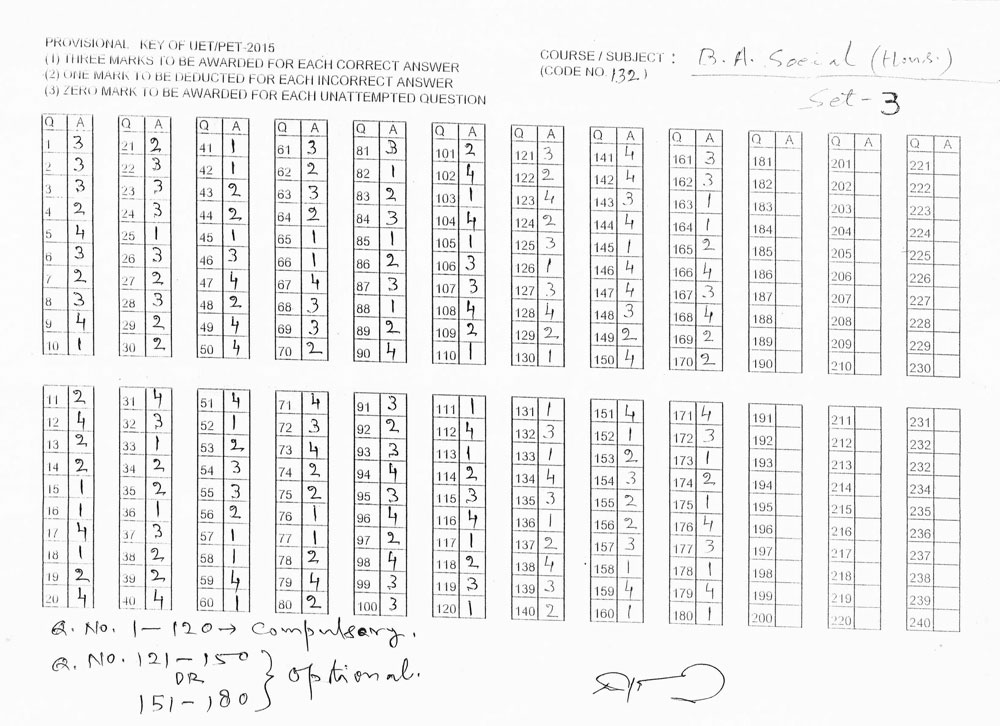 PROVISIONAL KEY OF UET/PET-2015
(1) THREE MARKS TO BE AWARDED FOR EACH CORRECT ANSWER
(2) ONE MARK TO BE DEDUCTED FOR EACH INCORRECT ANSWER
(3) ZERO MARK TO BE AWARDED FOR EACH UNATTEMPTED QUESTION
COURSE / SUBJECT : B.A. Social (Hons.)
(CODE NO. 132)
Set - 3
Q A Q A Q A Q A Q A Q A Q A Q A Q A Q A Q A Q A
1 3 21 2 41 1 61 3 81 3 101 2 121 3 141 4 161 3 181 201 221
2 3 22 3 42 1 62 2 82 1 102 4 122 2 142 4 162 3 182 202 222
3 3 23 3 43 2 63 3 83 2 103 1 123 4 143 3 163 1 183 203 223
4 2 24 3 44 2 64 2 84 3 104 4 124 2 144 4 164 1 184 204 224
5 4 25 1 45 1 65 1 85 1 105 1 125 3 145 1 165 2 185 205 225
6 3 26 3 46 3 66 1 86 2 106 3 126 1 146 4 166 4 186 206 226
7 2 27 2 47 4 67 4 87 3 107 3 127 3 147 4 167 3 187 207 227
8 3 28 3 48 2 68 3 88 1 108 4 128 4 148 3 168 4 188 208 228
9 4 29 2 49 4 69 3 89 2 109 2 129 2 149 2 169 2 189 209 229
10 1 30 2 50 4 70 2 90 4 110 1 130 1 150 4 170 2 190 210 230
11 2 31 4 51 4 71 4 91 3 111 1 131 1 151 4 171 4 191 211 231
12 4 32 3 52 1 72 3 92 2 112 4 132 3 152 1 172 3 192 212 232
13 2 33 1 53 2 73 4 93 3 113 1 133 1 153 2 173 1 193 213 232
14 2 34 2 54 3 74 2 94 4 114 2 134 4 154 3 174 2 194 214 234
15 1 35 2 55 3 75 2 95 3 115 3 135 3 155 2 175 1 195 215 235
16 1 36 1 56 2 76 1 96 4 116 4 136 1 156 2 176 4 196 216 236
17 4 37 3 57 1 77 1 97 2 117 1 137 2 157 3 177 3 197 217 237
18 1 38 2 58 1 78 2 98 4 118 2 138 4 158 1 178 1 198 218 238
19 2 39 2 59 4 79 4 99 3 119 3 139 3 159 4 179 4 199 219 239
20 4 40 4 60 1 80 2 100 3 120 1 140 2 160 1 180 1 200 220 240
Q. No. 1 - 120 → Compulsory.
Q. No. 121 - 150
OR
151 - 180 } optional.